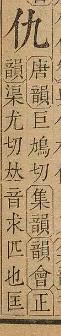 仇
唐韻巨鳩切集韻韻會正
韻渠尤切𠀤音求匹也匡